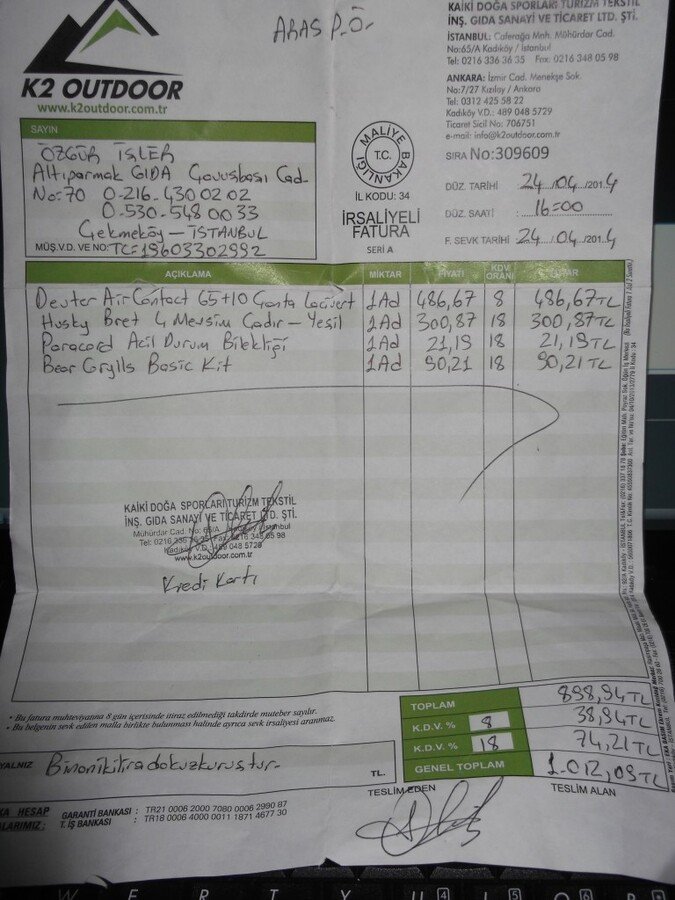 ARAS P.Ö.
K2 OUTDOOR
www.k2outdoor.com.tr
KAİKİ DOĞA SPORLARI TURİZM TEKSTİL
İNŞ. GIDA SANAYİ VE TİCARET LTD. ŞTİ.
İSTANBUL: Caferağa Mah. Mühürdar Cad.
No:65/A Kadıköy / İstanbul
Tel: 0216 336 36 35 Fax: 0216 348 05 98
ANKARA: İzmir Cad. Menekşe Sok.
No:7/27 Kızılay / Ankara
Tel: 0312 425 58 22
Kadıköy V.D.: 489 048 5729
Ticaret Sicil No: 706751
e-mail: info@k2outdoor.com.tr
SIRA No:309609
SAYIN
ÖZGÜR İŞLER
Altıparmak GIDA Çavuşbaşı Cad.
No:70 0-216-430 02 02
0-530-548 00 33
Çekmeköy - İSTANBUL
MÜŞ.V.D. VE NO: TC=19603302992
MALİYE BAKANLIĞI
T.C.
İL KODU: 34
İRSALİYELİ
FATURA
SERİ A
DÜZ. TARİHİ : 24/04/2014
DÜZ. SAATİ : 16=00
F. SEVK TARİHİ : 24/04/2014
AÇIKLAMA MİKTAR FİYATI KDV ORANI TUTAR
Deuter AirContact 65+10 Çanta Lacivert 1Ad 486,67 8 486,67TL
Husky Bret 4 Mevsim Çadır - Yeşil 1Ad 300,87 18 300,87TL
Paracord Acil Durum Bilekliği 1Ad 21,19 18 21,19TL
Bear Grylls Basic Kit 1Ad 90,21 18 90,21TL
KAİKİ DOĞA SPORLARI TURİZM TEKSTİL
İNŞ. GIDA SANAYİ VE TİCARET LTD. ŞTİ.
Mühürdar Cad. No: 65/A Kadıköy / İstanbul
Tel: 0216 336 36 35 Fax: 0216 348 05 98
Kadıköy V.D.: 489 048 5729
www.k2outdoor.com.tr
Kredi Kartı
• Bu fatura muhteviyatına 8 gün içerisinde itiraz edilmediği takdirde muteber sayılır.
• Bu belgenin sevk edilen malla birlikte bulunması halinde ayrıca sevk irsaliyesi aranmaz.
TOPLAM 898,94TL
K.D.V. % 8 38,94TL
K.D.V. % 18 74,21TL
GENEL TOPLAM 1.012,09TL
YALNIZ Binonikiliradokuzkuruştur- TL.
TESLİM EDEN TESLİM ALAN
KA HESAP
ALARIMIZ:
GARANTİ BANKASI : TR21 0006 2000 7080 0006 2990 87
T. İŞ BANKASI : TR18 0006 4000 0011 1871 4677 30
W E R T Y U 4 I 5 O 6 P